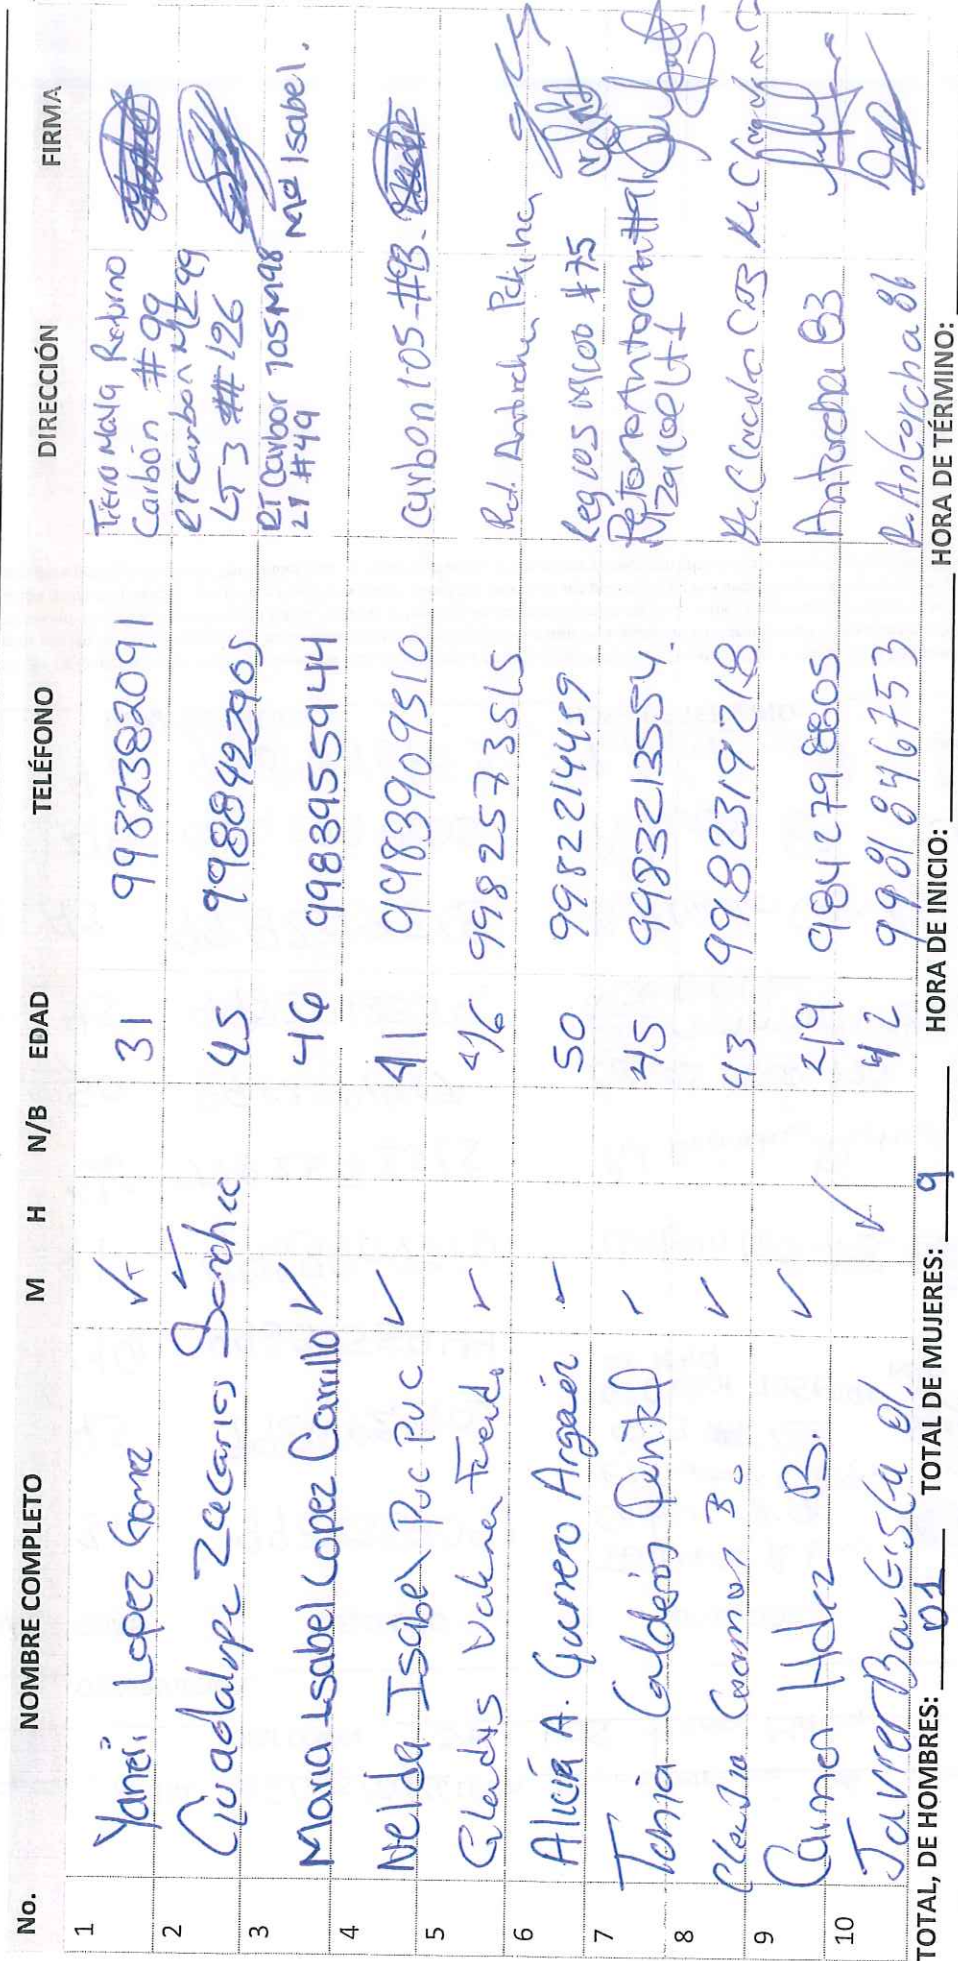 No. NOMBRE COMPLETO M H N/B EDAD TELÉFONO DIRECCIÓN FIRMA
1 Yaneli Lopez Gomez ✓ 31 9982382091 Tierra Mala Retorno
Carbón #99
2 Guadalupe Zacarias Sanchez ✓ 45 9988422905 RT Carbon Mz 99
LT 3 # 126
3 Maria Isabel Lopez Carrillo ✓ 46 9983955944 RT Carbor 105 M98
29 #49 Ma Isabel.
4 Nelda Isabel Puc Puc ✓ 41 9983909510 Carbon 105 #93.
5 Gladys Valencia ✓ 46 9982573515 Ret. Antorcha
6 Alicia A. Guerrero Argaéz ✓ 50 9982214459 #75
7 Tania Calderon ✓ 45 9983213554. Retorno Antorcha
8 Claudia Caamor B. ✓ 43 9982319718
9 Carmen Hdez B. ✓ 29 9842798805 Antorcha 83
10 Javier Bautista ✓ 42 9981846753 R. Antorcha 86
TOTAL, DE HOMBRES: 01 TOTAL DE MUJERES: 9 HORA DE INICIO: HORA DE TÉRMINO: